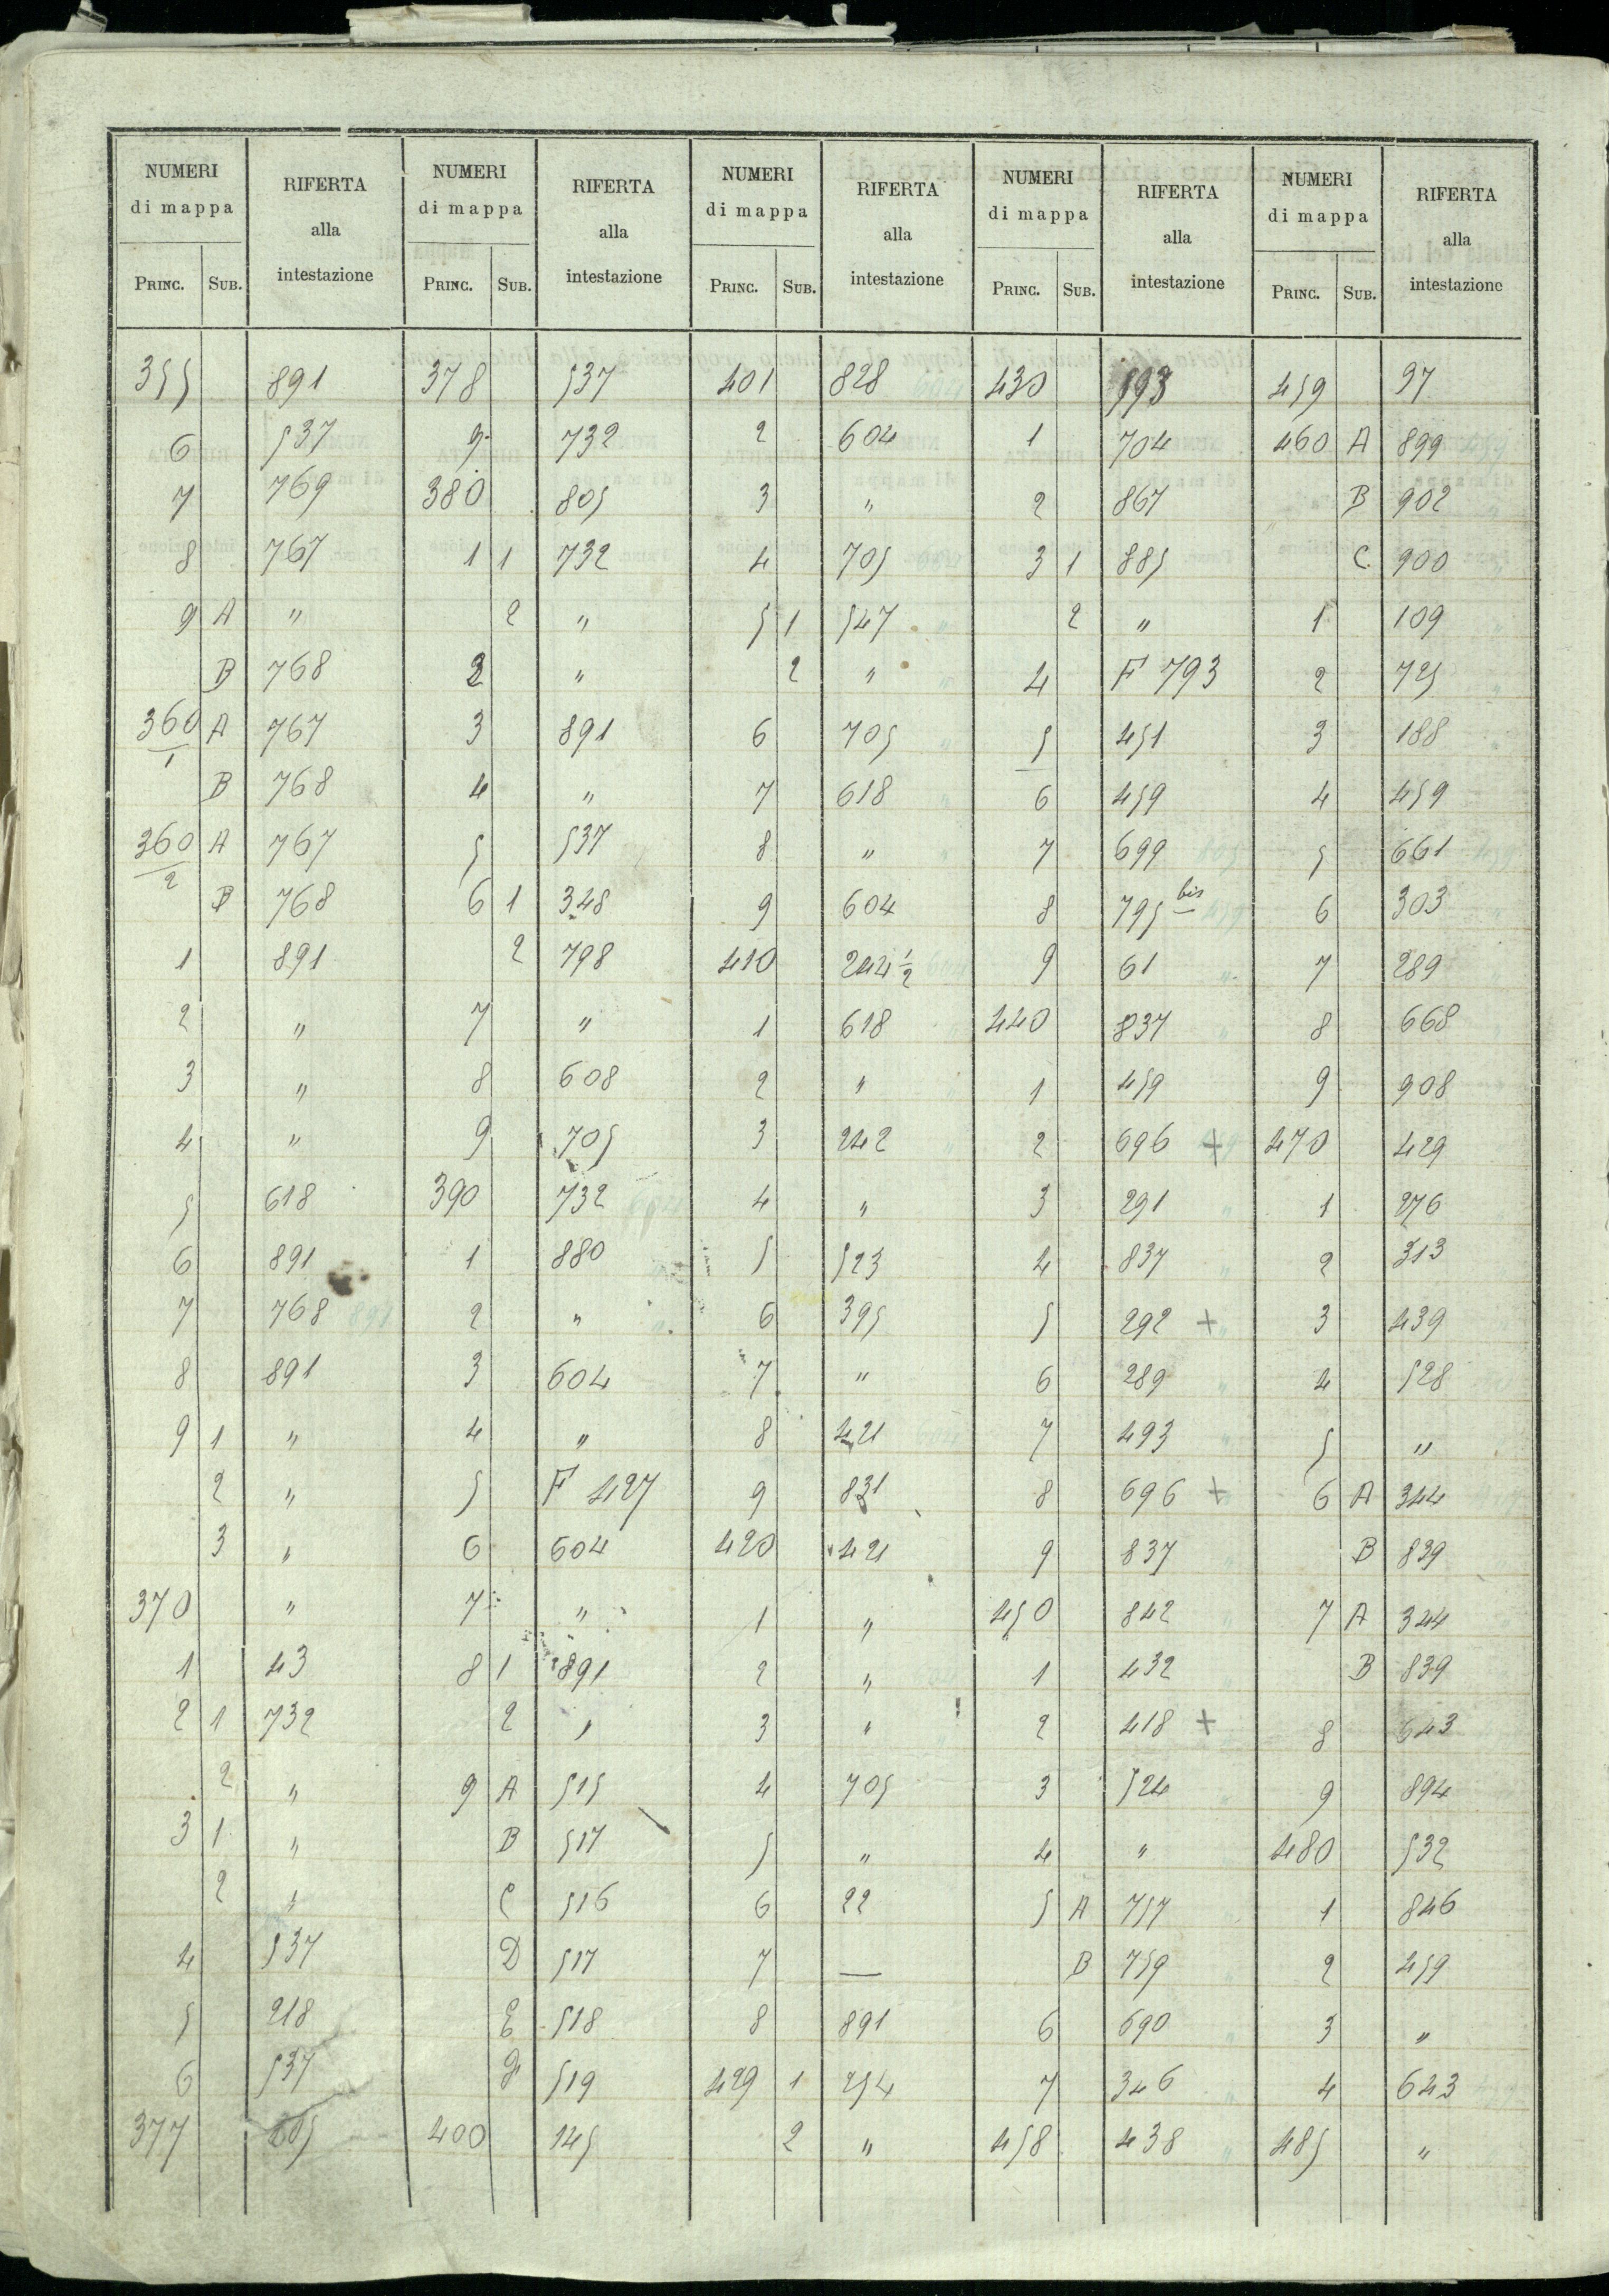 NUMERI di mappa | RIFERTA alla intestazione | NUMERI di mappa | RIFERTA alla intestazione | NUMERI di mappa | RIFERTA alla intestazione | NUMERI di mappa | RIFERTA alla intestazione | NUMERI di mappa | RIFERTA alla intestazione
PRINC. | SUB. | PRINC. | SUB. | PRINC. | SUB. | PRINC. | SUB. | PRINC. | SUB.
355 891 378 537 401 828 430 593 459 97
6 537 9 732 2 604 1 704 460 A 899
7 769 380 805 3 " 2 867 B 902
8 767 1 1 732 4 705 3 1 885 C 900
9 A " 2 " 5 1 547 2 " 1 109
B 768 2 " 2 " 4 F 793 2 725
360/1 A 767 3 891 6 705 5 451 3 188
B 768 4 " 7 618 6 459 4 459
360/2 A 767 5 537 8 " 7 699 5 661
B 768 6 1 348 9 604 8 795 bis 6 303
1 891 2 798 410 244 1/2 9 61 7 289
2 " 7 " 1 618 440 837 8 668
3 " 8 608 2 " 1 459 9 908
4 " 9 705 3 242 2 696 + 470 429
5 618 390 732 4 " 3 291 1 276
6 891 1 880 5 523 4 837 2 313
7 768 2 " 6 395 5 292 + 3 439
8 891 3 604 7 " 6 289 4 528
9 1 " 4 " 8 421 7 493 5 "
2 " 5 F 427 9 831 8 696 + 6 A 344
3 " 6 604 420 421 9 837 B 839
370 " 7 " 1 " 450 842 7 A 344
1 43 8 1 891 2 " 1 432 B 839
2 1 732 2 " 3 " 2 418 + 8 643
2 " 9 A 515 4 705 3 524 9 894
3 1 " B 517 5 " 4 " 480 532
2 " C 516 6 22 5 A 757 1 846
4 537 D 517 7 — B 759 2 459
5 218 E 518 8 891 6 690 3 "
6 537 519 429 1 254 7 346 4 643
377 400 145 2 " 458 438 485 "